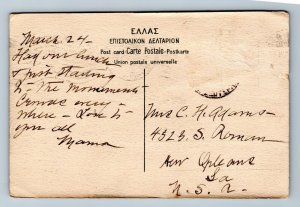 ΕΛΛΑΣ
ΕΠΙΣΤΟΛΙΚΟΝ ΔΕΛΤΑΡΙΟΝ
Post card-Carte Postale-Postkarte
Union postale universelle
March 24 -
Had our lunch
& just starting
to - The monuments
Crowds every -
where - Love to
you all
Mama
Mrs C. H. Adams -
4323 S. Roman
New Orleans
La
U.S.A.